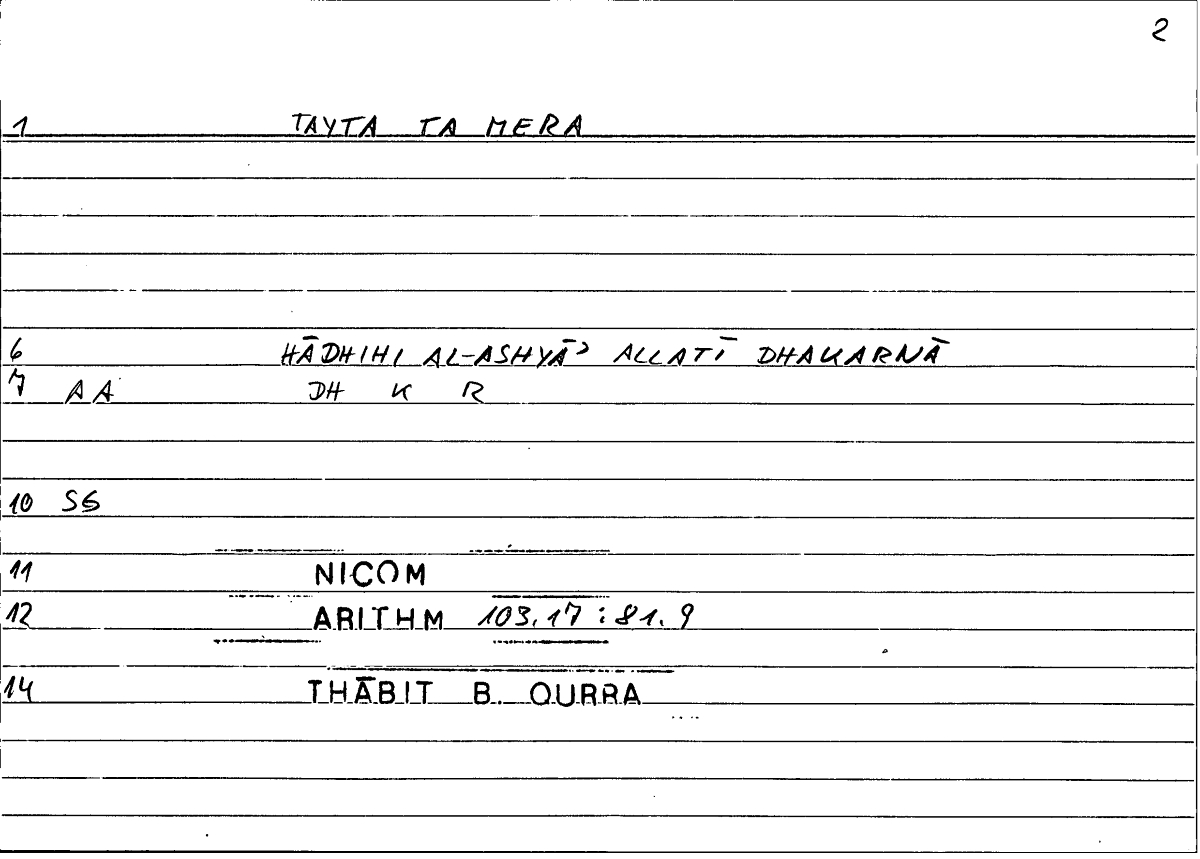 2
1 TAYTA TA MERA
6 HĀDHIHI AL-ASHYĀʾ ALLATĪ DHAKARNĀ
7 AA DH K R
10 SG
11 NICOM
12 ARITHM 103.17 : 81.9
14 THĀBIT B. QURRA